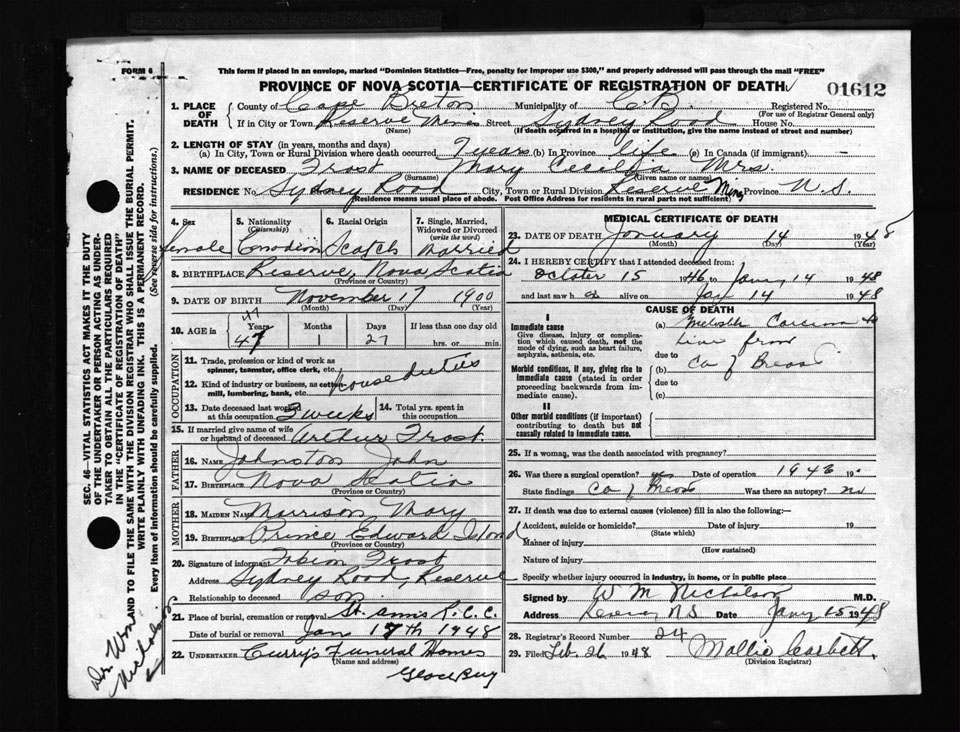 FORM 6
This form if placed in an envelope, marked "Dominion Statistics—Free, penalty for improper use $300," and properly addressed will pass through the mail "FREE"
PROVINCE OF NOVA SCOTIA—CERTIFICATE OF REGISTRATION OF DEATH
01612
1. PLACE OF DEATH { County of Cape Breton Municipality of C.B. Registered No.
(For use of Registrar General only)
If in City or Town Reserve Mines Street Sydney Road House No.
(Name) (If death occurred in a hospital or institution, give the name instead of street and number)
2. LENGTH OF STAY (in years, months and days)
(a) In City, Town or Rural Division where death occurred 7 years (b) In Province life (c) In Canada (if immigrant) —
3. NAME OF DECEASED Frost Mary Cecelia Mrs.
(Surname) (Given name or names)
RESIDENCE No. Sydney Road City, Town or Rural Division Reserve Mines Province N.S.
(Residence means usual place of abode. Post Office Address for residents in rural parts not sufficient)
4. Sex 5. Nationality (Citizenship) 6. Racial Origin 7. Single, Married, Widowed or Divorced (write the word)
Female Canadian Scotch Married
8. BIRTHPLACE Reserve, Nova Scotia
(Province or Country)
9. DATE OF BIRTH November 17 1900
(Month) (Day) (Year)
10. AGE in { Years Months Days If less than one day old
47
47 1 27 hrs. or min.
OCCUPATION
11. Trade, profession or kind of work as spinner, teamster, office clerk, etc.
12. Kind of industry or business, as cotton mill, lumbering, bank, etc. House duties
13. Date deceased last worked at this occupation 3 weeks 14. Total yrs. spent in this occupation
15. If married give name of wife or husband of deceased Arthur Frost.
FATHER
16. NAME Johnston John
17. BIRTHPLACE Nova Scotia
(Province or Country)
MOTHER
18. MAIDEN NAME Morrison, Mary
19. BIRTHPLACE Prince Edward Island
(Province or Country)
20. Signature of informant Frost
Address Sydney Road, Reserve
Relationship to deceased son
21. Place of burial, cremation or removal St. Anns R.C.C.
Date of burial or removal Jan 17th 1948
22. UNDERTAKER Curry's Funeral Homes
(Name and address)
Glace Bay
MEDICAL CERTIFICATE OF DEATH
23. DATE OF DEATH January 14 1948
(Month) (Day) (Year)
24. I HEREBY CERTIFY that I attended deceased from:
October 15 1946 to Jany 14 1948
and last saw h alive on Jan 14 1948
CAUSE OF DEATH
I
Immediate cause
Give disease, injury or complication which caused death, not the mode of dying, such as heart failure, asphyxia, asthenia, etc.
(a) Carcinoma
liver from
due to
Morbid conditions, if any, giving rise to immediate cause (stated in order proceeding backwards from immediate cause).
(b) Ca of Breast
due to
(c)
II
Other morbid conditions (if important) contributing to death but not causally related to immediate cause.
25. If a woman, was the death associated with pregnancy?
26. Was there a surgical operation? yes Date of operation 1946 19
State findings Ca of Breast Was there an autopsy? no
27. If death was due to external causes (violence) fill in also the following:—
Accident, suicide or homicide? Date of injury 19
(State which)
Manner of injury
(How sustained)
Nature of injury
Specify whether injury occurred in industry, in home, or in public place
Signed by W M Nicholson M.D.
Address Reserve, N.S. Date Jany 15 1948
28. Registrar's Record Number 24
29. Filed Feb. 26 1948 Mollie Corbett.
(Division Registrar)
SEC. 46—VITAL STATISTICS ACT MAKES IT THE DUTY OF THE UNDERTAKER OR PERSON ACTING AS UNDERTAKER TO OBTAIN ALL THE PARTICULARS REQUIRED IN THE "CERTIFICATE OF REGISTRATION OF DEATH" AND TO FILE THE SAME WITH THE DIVISION REGISTRAR WHO SHALL ISSUE THE BURIAL PERMIT.
WRITE PLAINLY WITH UNFADING INK. THIS IS A PERMANENT RECORD.
Every item of information should be carefully supplied. (See reverse side for instructions.)
Nicholson